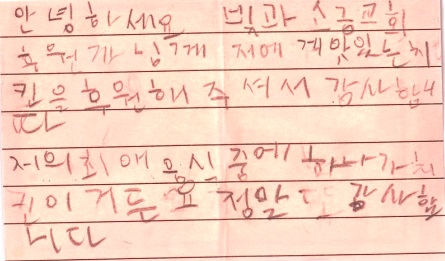 안녕하세요 빛과 소금교회
후원자님께 저에
을 후원해 주셔서 감사합니
다
저의 최애 음식 중에 하나가 치
킨이거든요 정말 감사합
니다